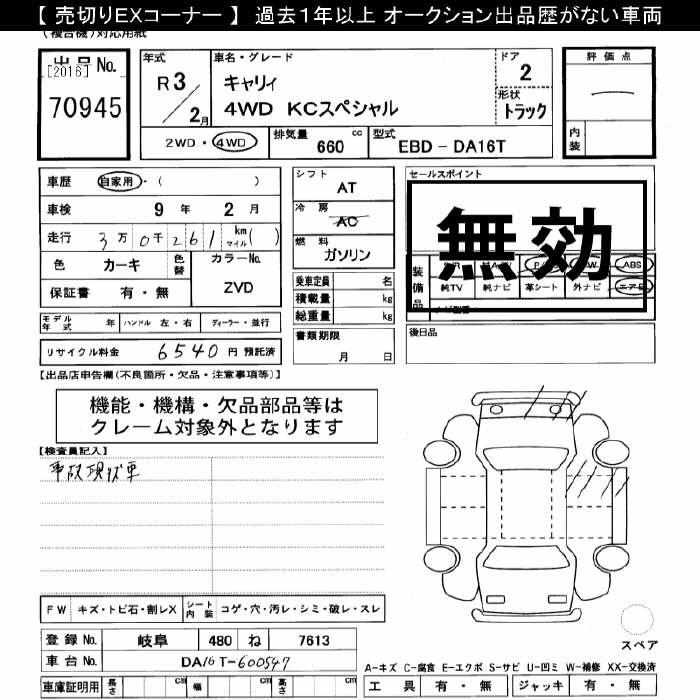 【 売切りEXコーナー 】 過去1年以上 オークション出品歴がない車両
(複合機)対応用紙
出品 No.
[2016]
70945
年式
R3/2月
車名・グレード
キャリィ
4WD KCスペシャル
ドア
2
形状
トラック
評価点
内装
2WD・4WD
排気量 660 cc
型式 EBD-DA16T
車歴 自家用・( )
車検 9年 2月
走行 3万0千261 km マイル( )
色 カーキ 色替
カラーNo.
ZVD
保証書 有・無
モデル年式 年 ハンドル 左・右 ディーラー・並行
リサイクル料金 6540 円 預託済
シフト AT
冷房 AC
燃料 ガソリン
乗車定員 名
積載量 kg
総重量 kg
書類期限
月 日
セールスポイント
無効
装備品
ABS
純TV 純ナビ 革シート 外ナビ エアB
後日品
【出品店申告欄(不良箇所・欠品・注意事項等)】
機能・機構・欠品部品等は
クレーム対象外となります
【検査員記入】
事故現状車
FW キズ・トビ石・割レX シート内装 コゲ・穴・汚レ・シミ・破レ・スレ
登録 No. 岐阜 480 ね 7613
車台 No. DA16T-600547
車庫証明用 長さ cm 幅 cm 高さ cm
スペア
A-キズ C-腐食 E-エクボ S-サビ U-凹ミ W-補修 XX-交換済
工具 有・無 ジャッキ 有・無